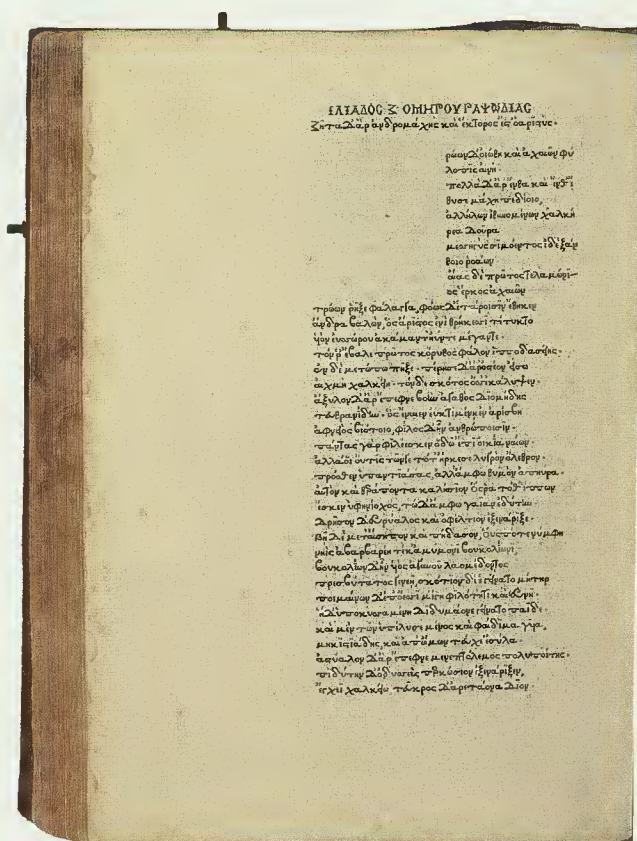 ΙΛΙΑΔΟΣ Ζ ΟΜΗΡΟΥ ΡΑΨΩΔΙΑΣ
Ζῆτα δ' ἄρ' ἀνδρομάχης καὶ ἕκτορος ἐς ὀαριστύς·
ρώων δ' οἰώθη καὶ ἀχαιῶν φύ
λοπις αἰνή·
πολλὰ δ' ἄρ' ἔνθα καὶ ἔνθ' ἴ
θυσε μάχη πεδίοιο,
ἀλλήλων ἰθυνομένων χαλκή
ρεα δοῦρα
μεσηγὺς σιμόεντος ἰδὲ ξάν
θοιο ροάων
αἴας δὲ πρῶτος τελαμώνι-
ος ἕρκος ἀχαιῶν
τρώων ρῆξε φάλαγγα, φόως δ' ἑτάροισιν ἔθηκεν
ἄνδρα βαλὼν, ὃς ἄριστος ἐνὶ θρήκεσσι τέτυκτο
υἱὸν ἐυσσώρου ἀκάμαντ' ἠύν τε μέγαν τε·
τόν ρ' ἔβαλε πρῶτος κόρυθος φάλον ἱπποδασείης·
ἐν δὲ μετώπω πῆξε· πέρησε δ' ἄρ' ὀστέον εἴσω
αἰχμὴ χαλκείη· τὸν δὲ σκότος ὄσσε κάλυψεν·
ἄξυλον δ' ἄρ' ἔπεφνε βοὴν ἀγαθὸς διομήδης
τευθρανίδην· ὃς ἔναιεν ἐυκτιμένη ἐν ἀρίσβη
ἀφνειὸς βιότοιο, φίλος δ' ἦν ἀνθρώποισιν·
πάντας γὰρ φιλέεσκεν ὁδῶ ἔπι οἰκία ναίων·
ἀλλά οἱ οὔτις τῶν γε τότ' ἤρκεσε λυγρὸν ὄλεθρον·
πρόσθεν ὑπαντιάσας, ἀλλ' ἄμφω θυμὸν ἀπηύρα·
αὐτὸν καὶ θεράποντα καλήσιον ὅς ρα τόθ' ἵππων
ἔσκεν ὑφηνίοχος, τὼ δ' ἄμφω γαῖαν ἐδύτην·
δρῆσον δ' εὐρύαλος καὶ ὀφέλτιον ἐξενάριξε·
βῆ δὲ μετ' αἴσηπον καὶ πήδασον, οὕς ποτε νύμφη
νηὶς ἀβαρβαρέη τέκ' ἀμύμονι βουκολίωνι,
βουκολίων δ' ἦν υἱὸς ἀγαυοῦ λαομέδοντος
πρεσβύτατος γενεῆ, σκότιον δέ ἑ γείνατο μήτηρ
ποιμαίνων δ' ἐπ' ὄεσσι μίγη φιλότητι καὶ εὐνῆ·
ἡ δ' ὑποκυσαμένη διδυμάονε γείνατο παῖδε·
καὶ μὲν τῶν ὑπέλυσε μένος καὶ φαίδιμα γυῖα,
μηκιστιάδης, καὶ ἀπ' ὤμων τεύχε' ἐσύλα·
ἀστύαλον δ' ἄρ' ἔπεφνε μενεπτόλεμος πολυποίτης·
πιδύτην δ' ὀδυσσεὺς περκώσιον ἐξενάριξεν,
ἔγχεϊ χαλκείω, τεῦκρος δ' ἀρετάονα δῖον·